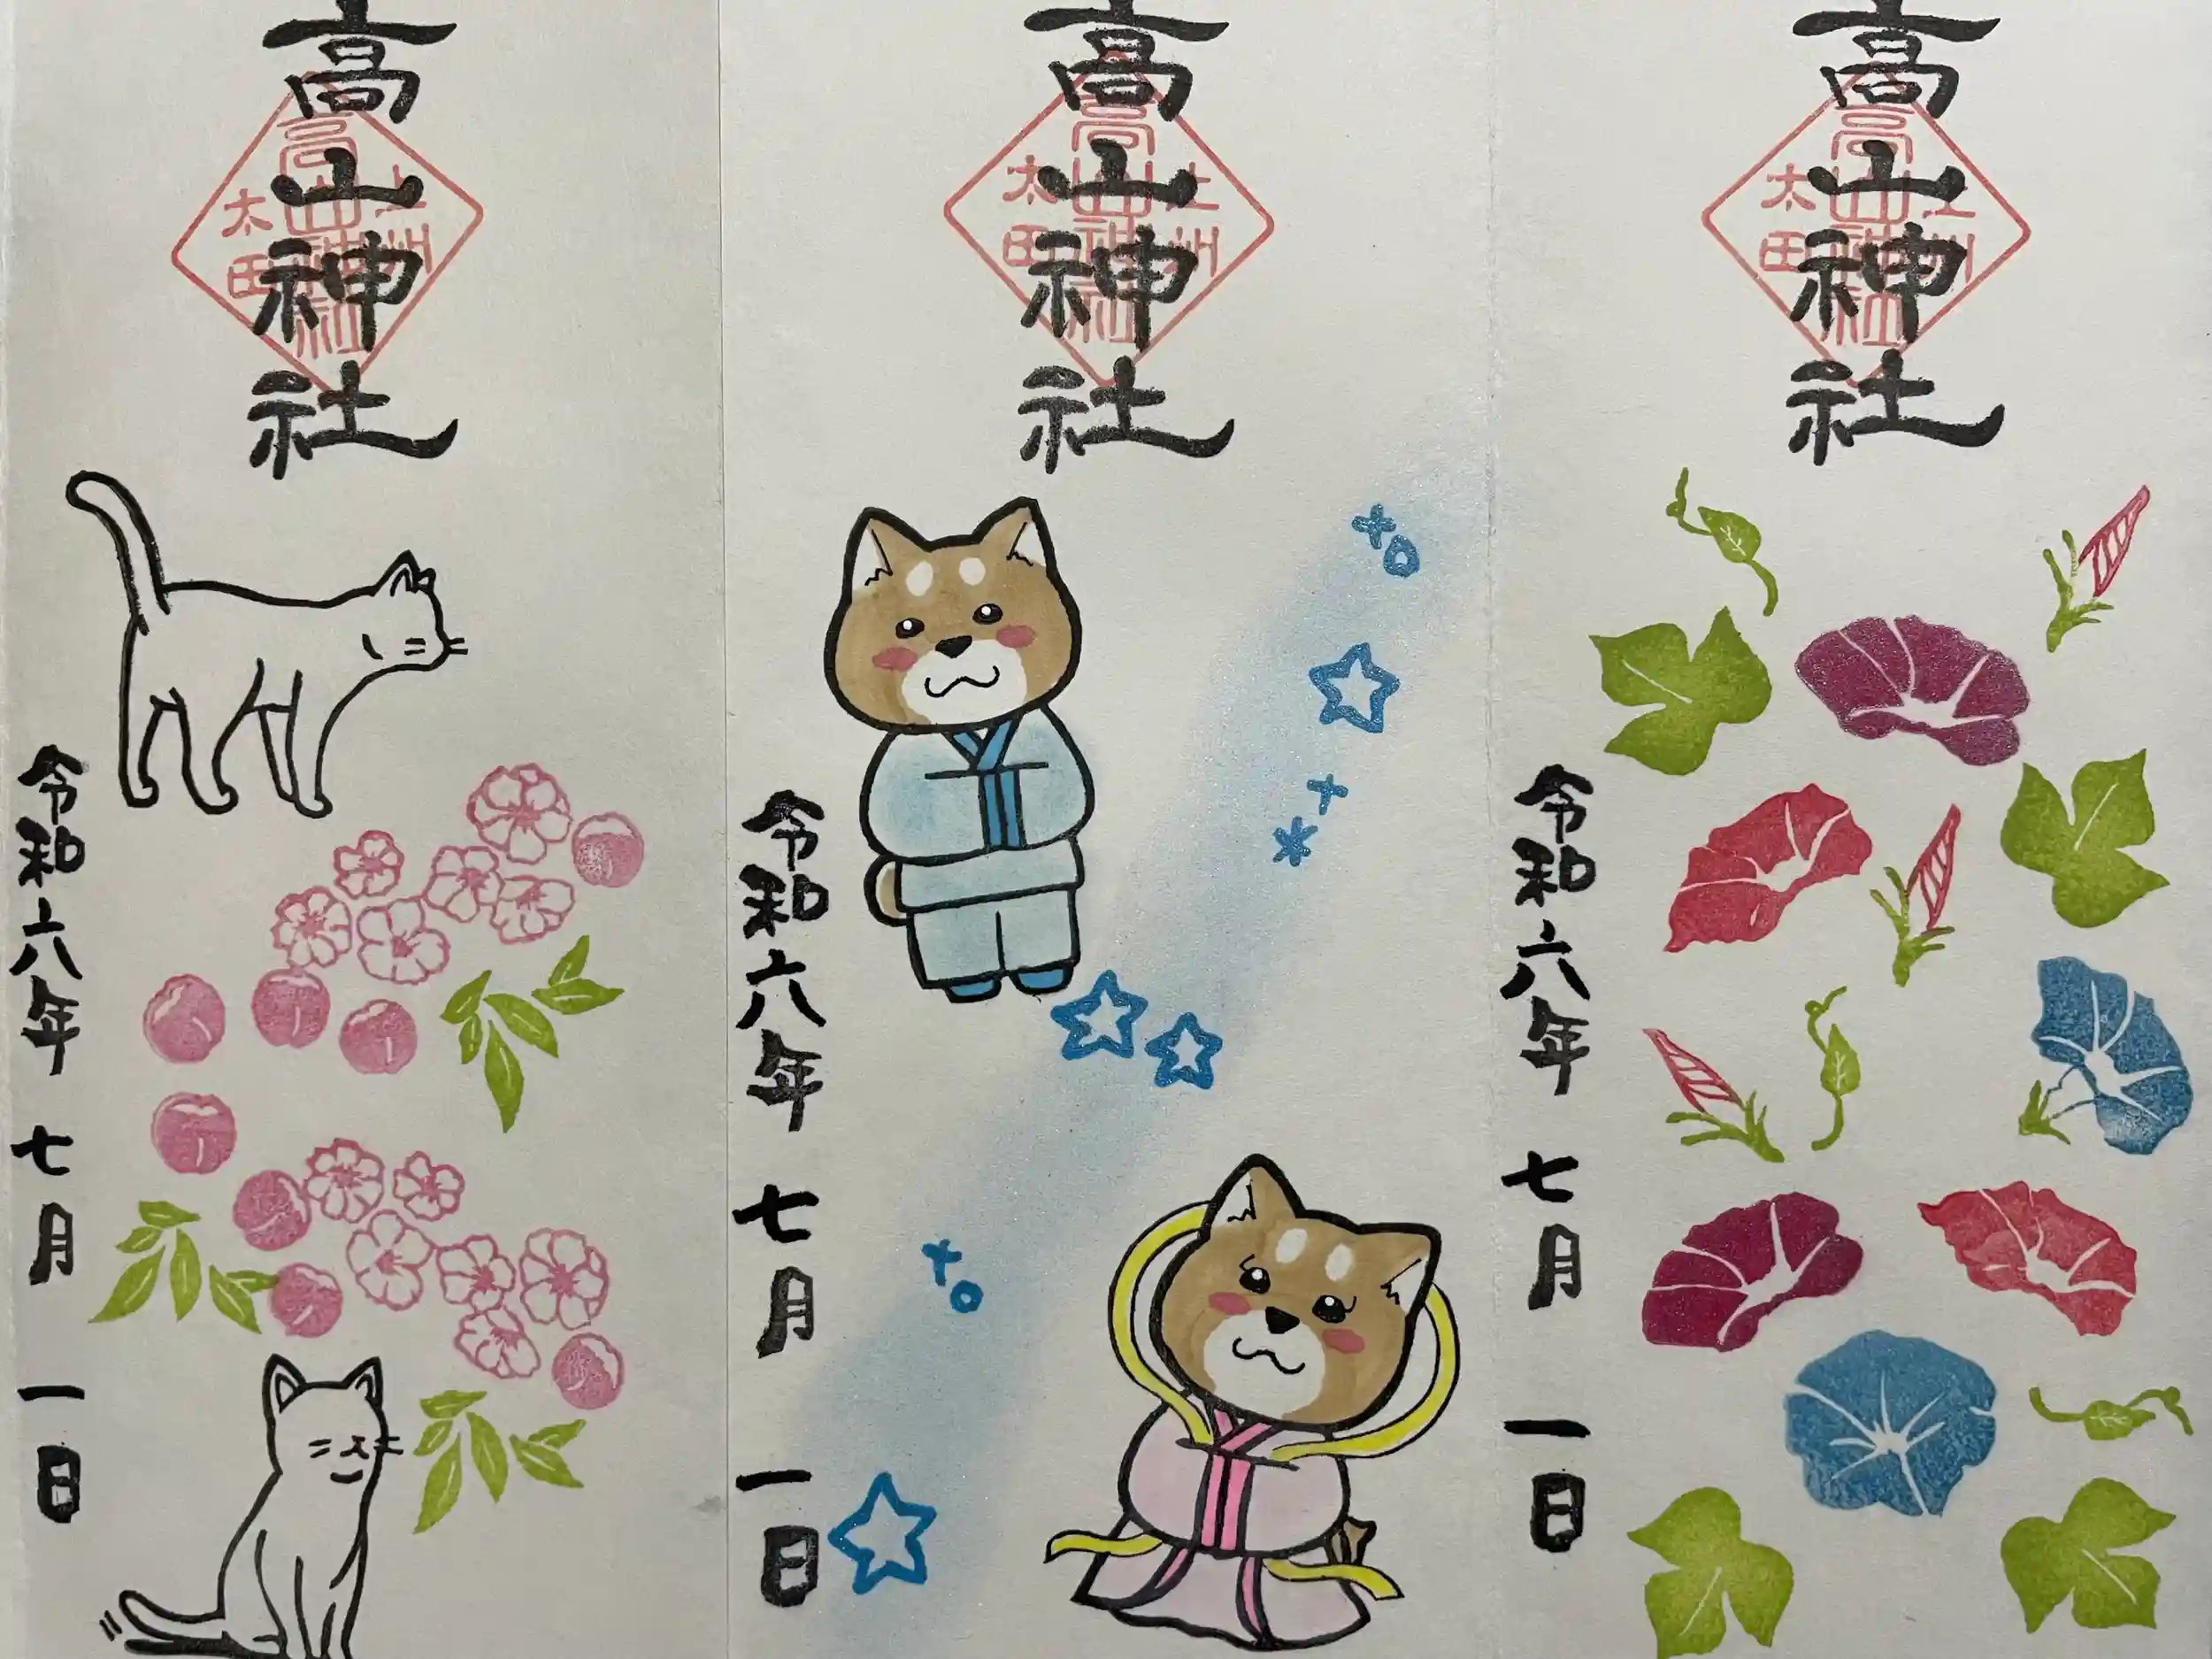 高山神社
上州
高山神社
太田
令和六年 七月 一日
高山神社
上州
高山神社
太田
令和六年 七月 一日
高山神社
上州
高山神社
太田
令和六年 七月 一日